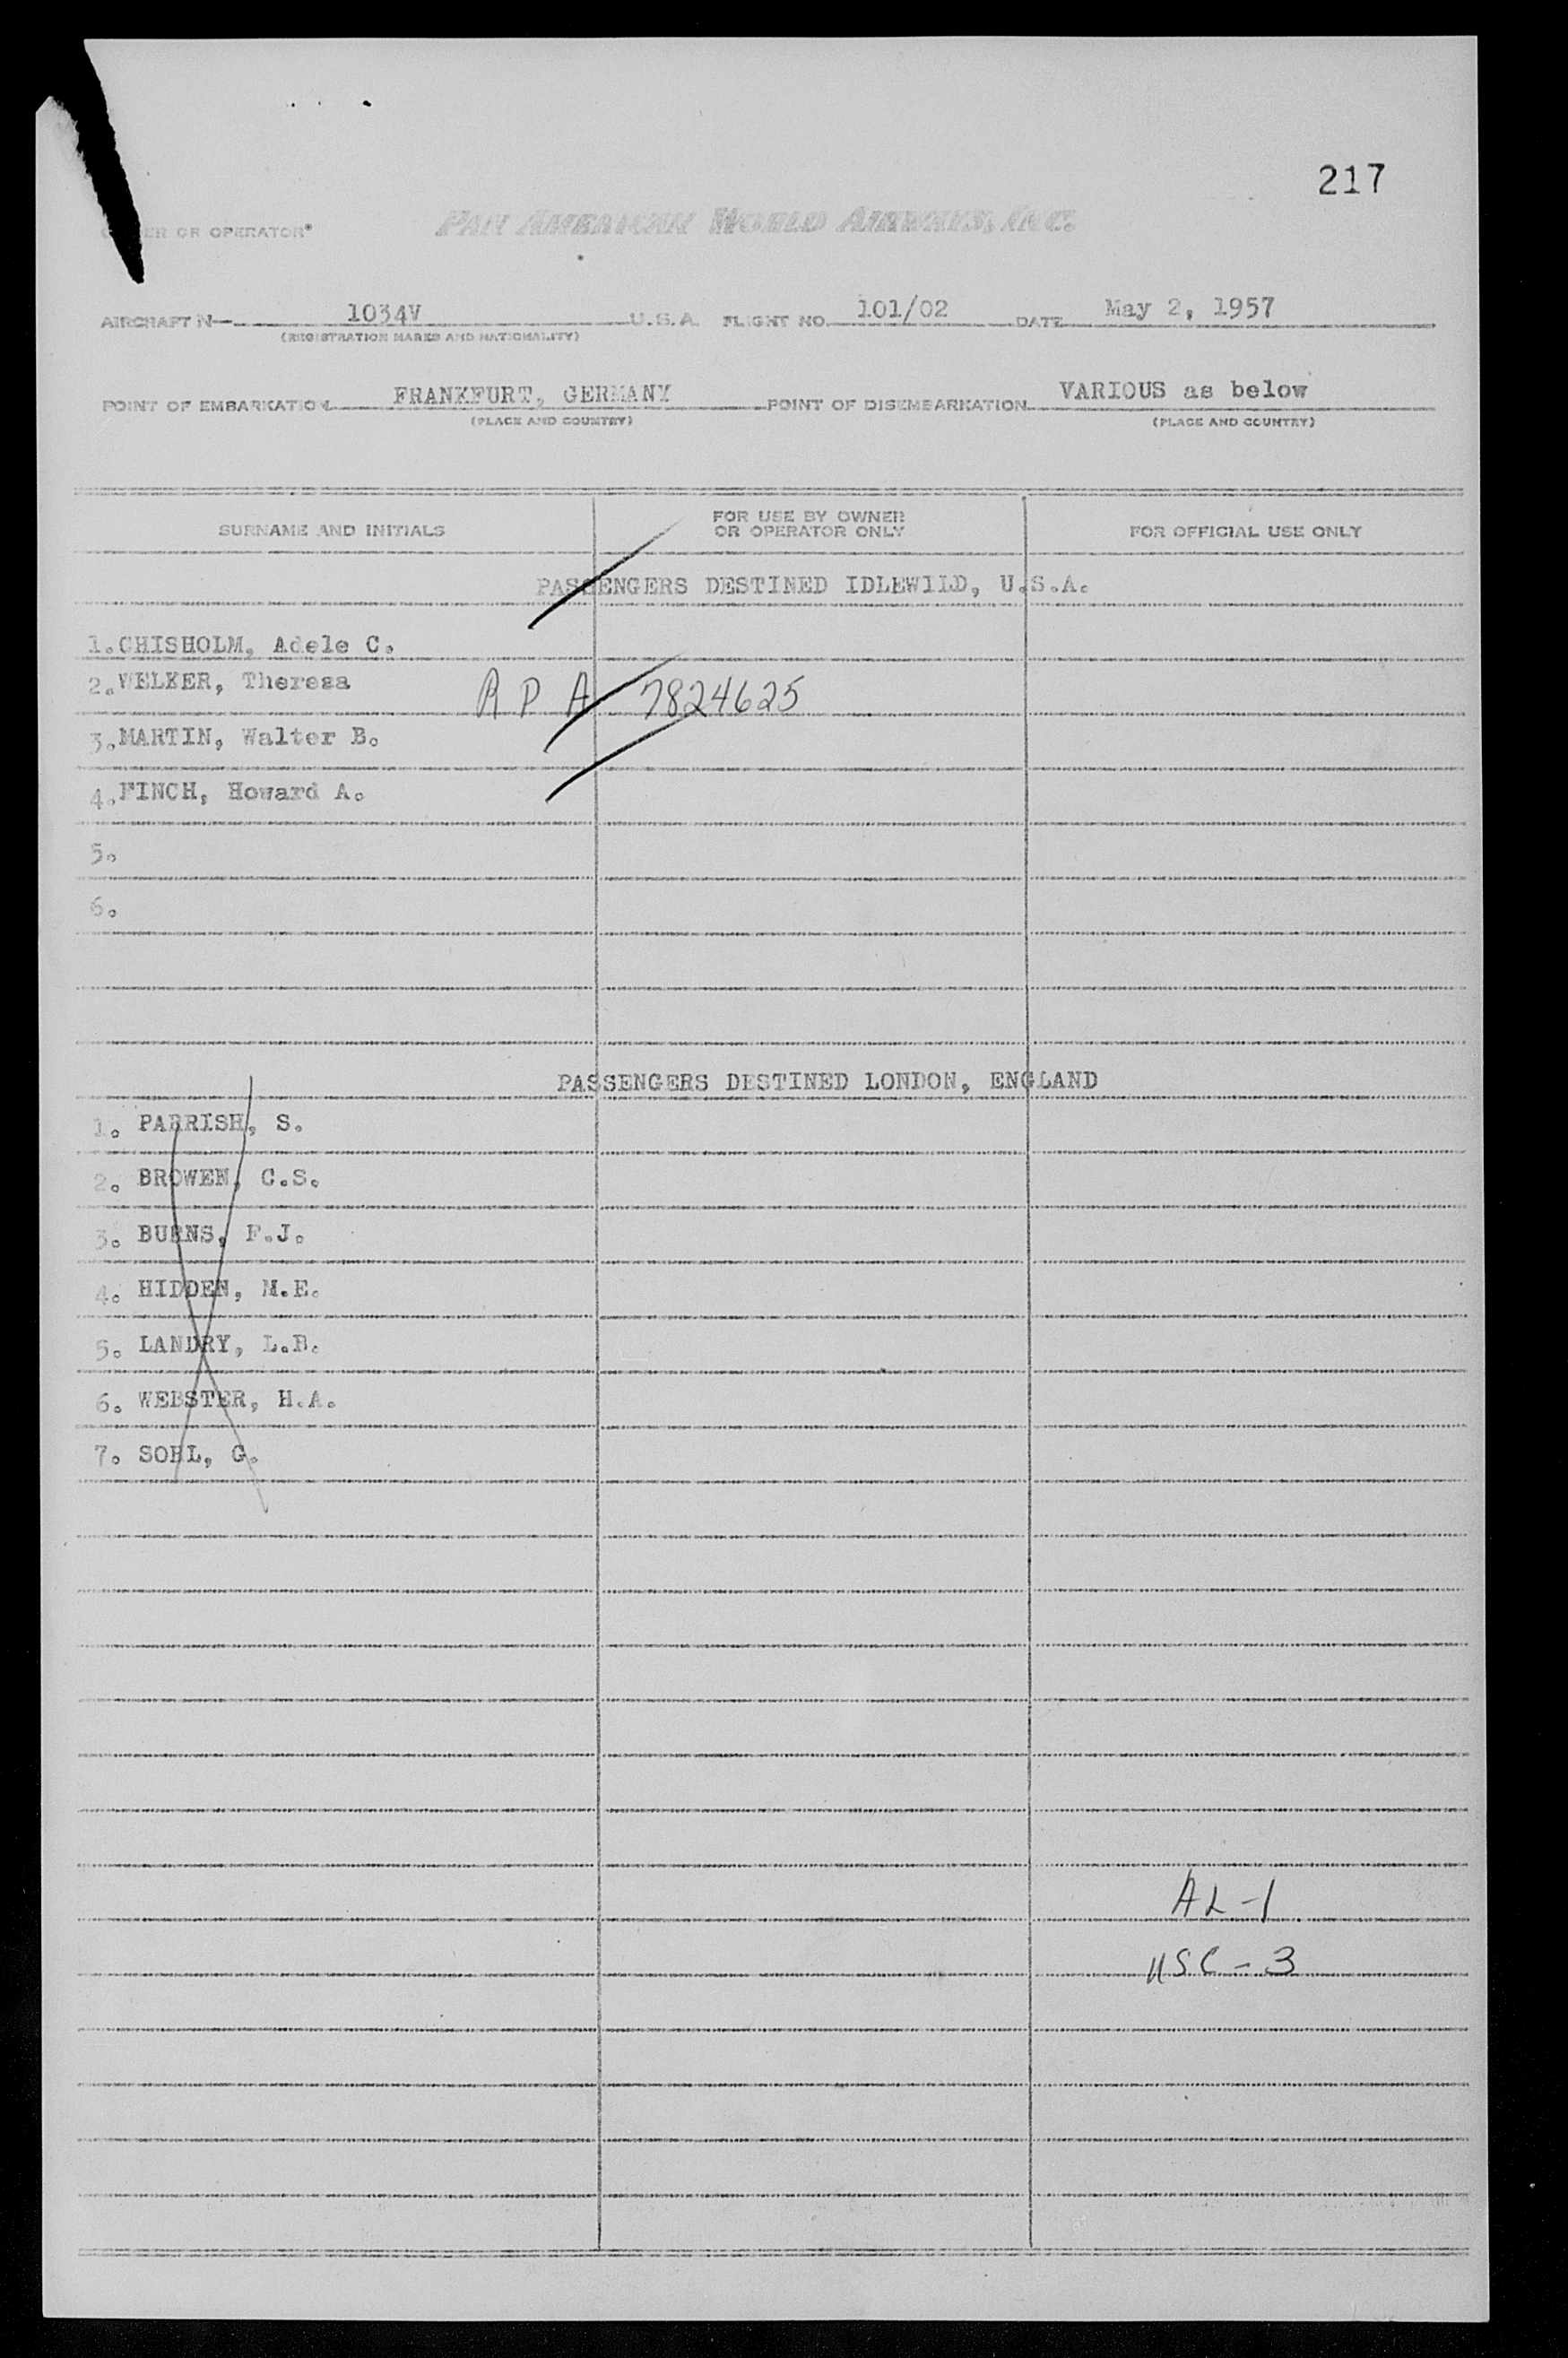 217
OWNER OR OPERATOR PAN AMERICAN WORLD AIRWAYS, INC.
AIRCRAFT N 1034V U.S.A. FLIGHT NO. 101/02 DATE May 2, 1957
(REGISTRATION MARKS AND NATIONALITY)
POINT OF EMBARKATION FRANKFURT, GERMANY POINT OF DISEMBARKATION VARIOUS as below
(PLACE AND COUNTRY) (PLACE AND COUNTRY)
SURNAME AND INITIALS FOR USE BY OWNER OR OPERATOR ONLY FOR OFFICIAL USE ONLY
PASSENGERS DESTINED IDLEWILD, U.S.A.
1. CHISHOLM, Adele C.
2. WELKER, Theresa R P A 7824625
3. MARTIN, Walter B.
4. FINCH, Howard A.
5.
6.
PASSENGERS DESTINED LONDON, ENGLAND
1. PARRISH, S.
2. BROWEN, C.S.
3. BURNS, F.J.
4. HIDDEN, M.E.
5. LANDRY, L.B.
6. WEBSTER, H.A.
7. SOHL, G.
AL-1
USC-3